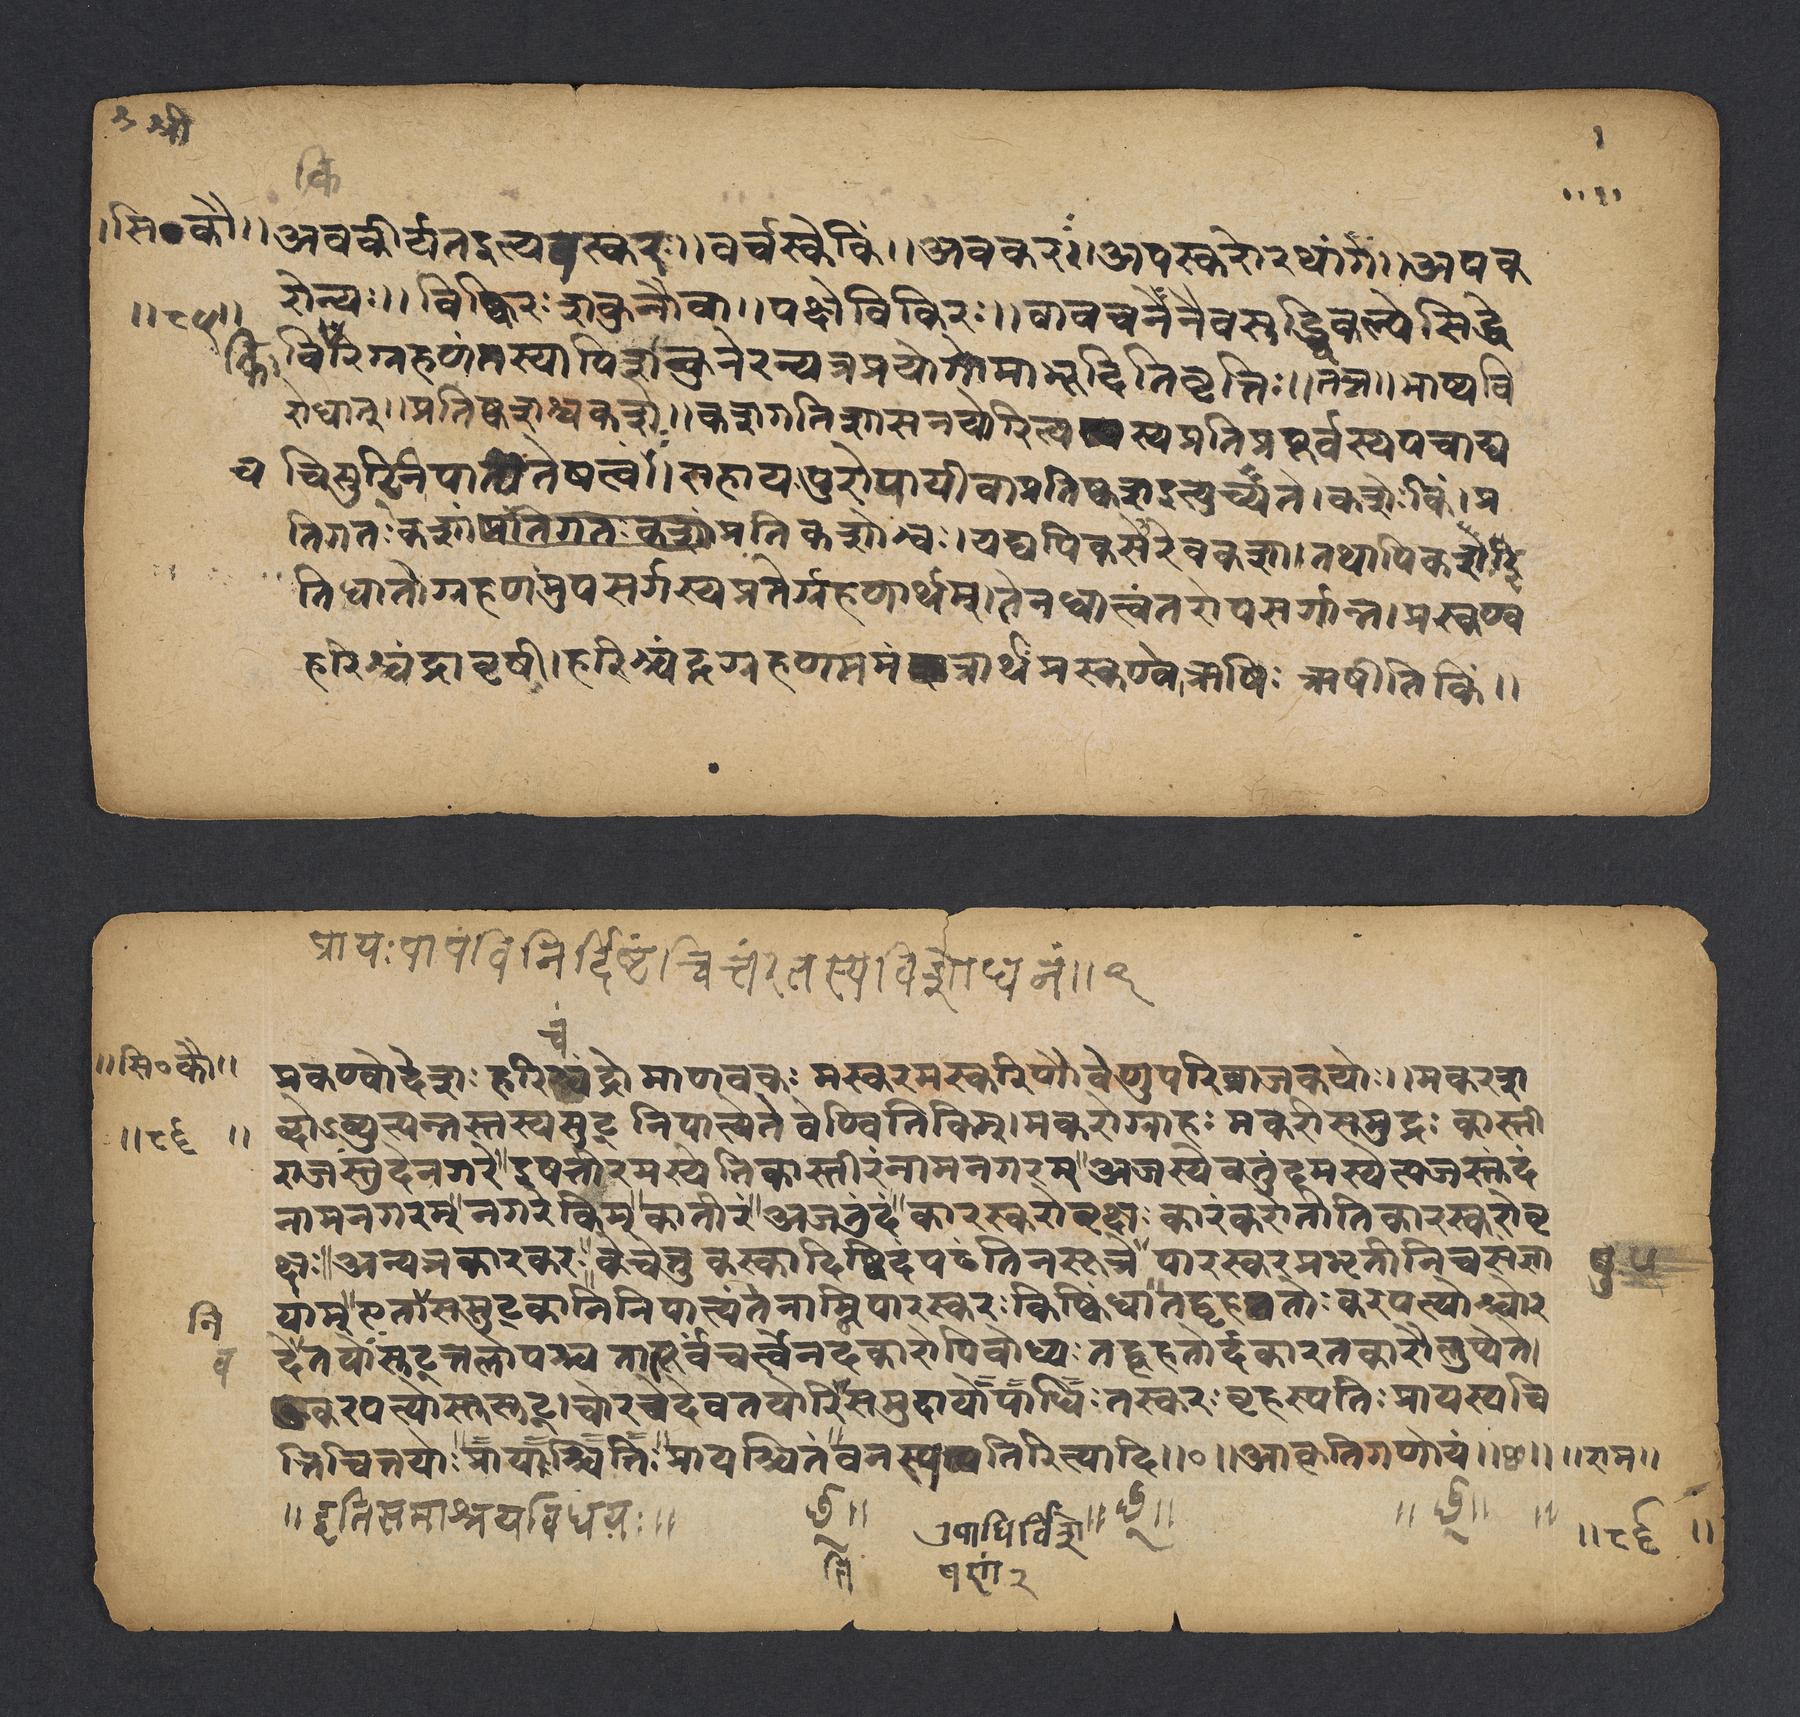 श्री
कि
।सि०कौ।।
अवकीर्यतइत्यवस्करः।।वर्चस्केकिं।।अवकरः।।अपस्करोरथांगं।।अपक
।।८५।।
रोन्यः।।विष्किरःशकुनौवा।।पक्षेविकिरः।।वावचनेनैवसुड्विकल्पेसिद्धे
विकिरग्रहणंतस्यापिशकुनेरन्यत्रप्रयोगोमाभूदितिवृत्तिः।।तन्न।।भाष्यवि
रोधात्।।प्रतिष्कशश्चकशेः।।कशगतिशासनयोरित्यस्यप्रतिपूर्वस्यपचाद्य
चिसुट्निपात्यतेषत्वं।।सहायःपुरोयायीवाप्रतिष्कशइत्युच्यते।कशेःकिं।प्र
तिगतःकशांप्रतिकशोश्वः।यद्यपिकशेरेवकशा।तथापिकशेरि
तिधातोर्ग्रहणमुपसर्गस्यप्रतेर्ग्रहणार्थम्।तेनधात्वंतरोपसर्गान्न।प्रस्कण्व
हरिश्चंद्रावृषी।हरिश्चंद्रग्रहणममंत्रार्थंप्रस्कण्वऋषिः ऋषीतिकिं।।
प्रायःपापंविनिर्दिष्टंचित्तंतस्यविशोधनं।।१
चं
।।सि०कौ।।
प्रकण्वोदेशः हरिश्चंद्रोमाणवकः मस्करमस्करिणौवेणुपरिव्राजकयोः।।मकरश
।।८६ ।।
ब्दोऽव्युत्पन्नस्तस्यसुट् निपात्यते वेण्वितिकिम्।मकरोग्राहः मकरीसमुद्रः कास्ती
राजस्तुंदेनगरे ईषत्तीरमस्येतिकास्तीरंनामनगरम् अजस्येवतुंदमस्येत्यजस्तुंदं
नामनगरम् नगरेकिम् कातीरं अजतुंदं कारस्करोवृक्षः कारंकरोतीतिकारस्करोवृ
क्षः अन्यत्रकारकरः केचित्तु कस्कादिष्विदंपठंतिनसूत्रे पारस्करप्रभृतीनिचसंज्ञा
याम् एतानिससुट्कानिनिपात्यंतेनाम्नि पारस्करः किष्किंधा तद्बृहतोः करपत्योश्चोर
देवतयोःसुट्तलोपश्च तात्पूर्वंचर्त्वेनदकारोपिबोध्यः तद्बृहतोर्दकारतकारौलुप्येते।
करपत्योस्तुसुट्।चोरदेवतयोरितिसमुदायोपाधिः तस्करः बृहस्पतिः प्रायस्यचि
त्तिचित्तयोः प्रायश्चित्तिः प्रायश्चित्तं वनस्पतिरित्यादि।।०।।आकृतिगणोयं।।
।।राम।।
।।इतिसमाश्रयविधयः।।
।।८६ ।।